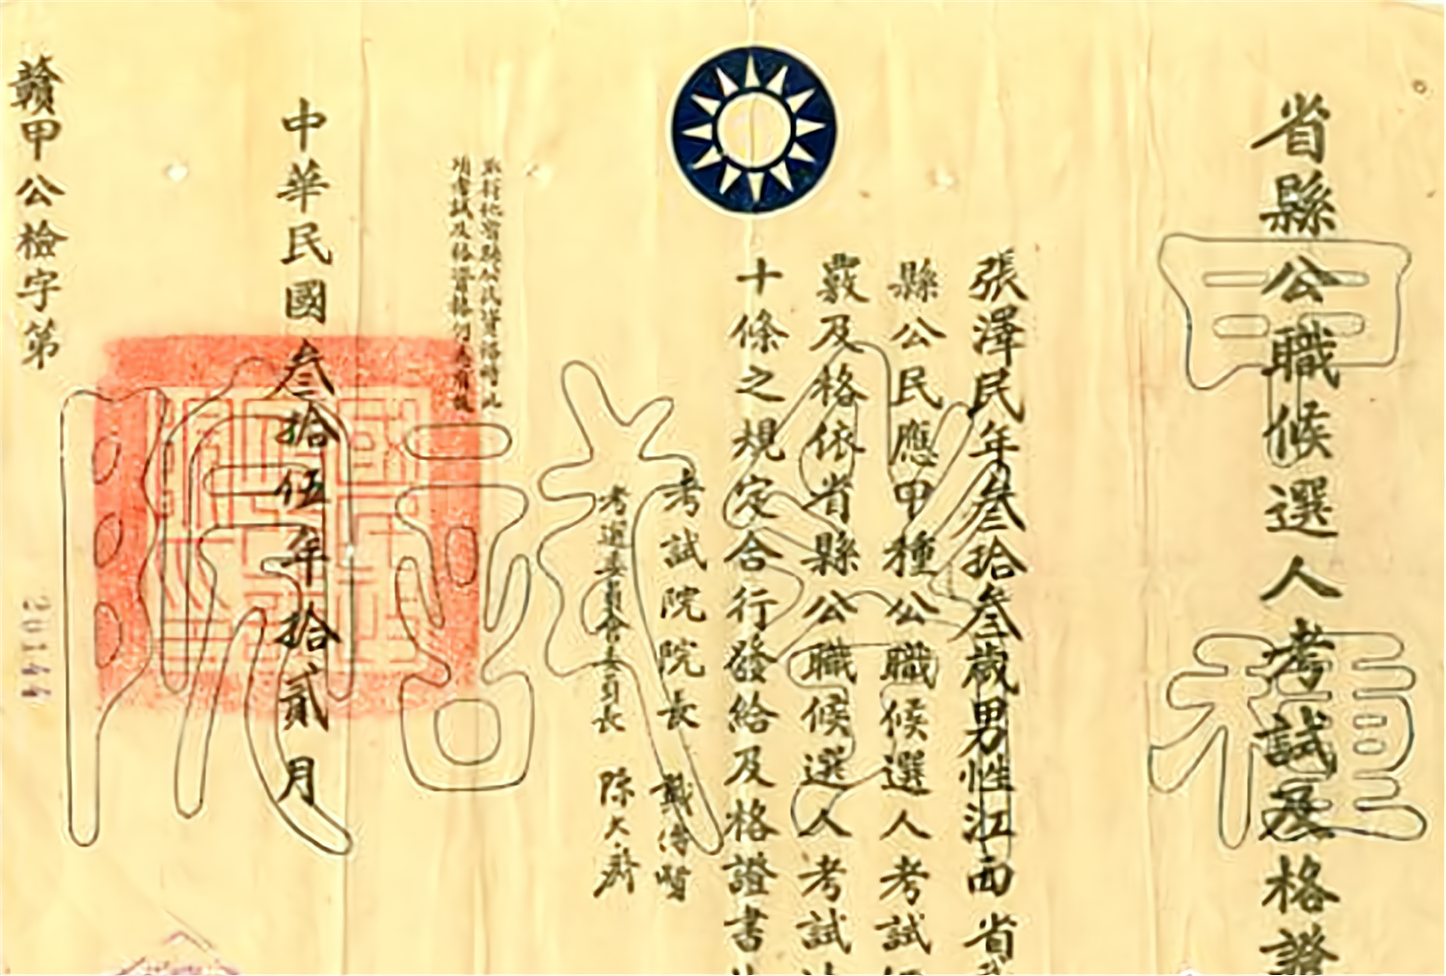 省縣公職候選人考試及格證
甲種
張澤民年叁拾叁歲男性江西省
縣公民應甲種公職候選人考試
覈及格依省縣公職候選人考試法
十條之規定合行發給及格證書
考試院院長 戴傳賢
考選委員會委員長 陳大齊
取得他省縣公民資格時此
項考試及格資格仍為有效
中華民國叁拾伍年拾貳月
考試院
贛甲公檢字第
20144